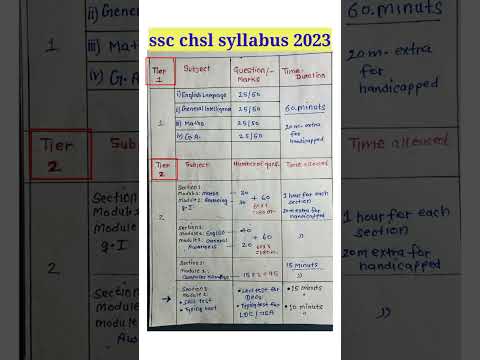 ssc chsl syllabus 2023
Tier 1
Subject
Question/- Marks
Time- Duration
1
i) English Language 25/50
ii) General Intelligence 25/50
iii) Maths 25/50
iv) G.A. 25/50
60. minuts
20 m- extra
for
handicapped
Tier 2
Subject
Number of ques.
Time allowed
2
Section 1:
Module 1: Maths 30
Module 2: Reasoning 30
g.I
+ 60
1 hour for each
section
20 m extra for
handicapped
Section 2:
Module 1: English 40
Module 2: General 20
Awareness
+ 60
Section 3:
Module 1:
15 x 3 = 45
15 Minuts
Section 3
Module 2:
• Skill test
• Typing test
• Skill test for
DEO
• Typing test for
LDC / JSA
• 15 minuts
• 10 minuts
ii) General
iii) Maths
iv) G. A.
1
60. minuts
20 m- extra
for
handicapped
Tier 2
Time allowed
2
1 hour for each
section
20 m extra for
handicapped